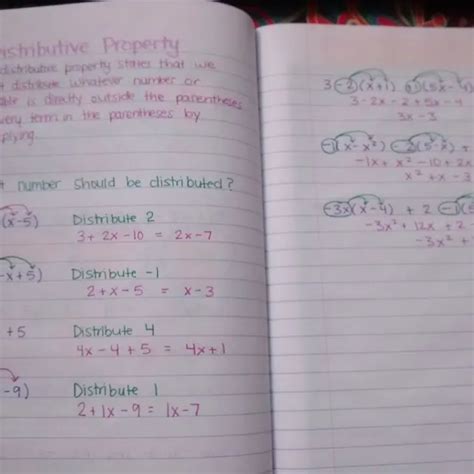 istributive Property
distributive property states that we
t distribute whatever number or
le is directly outside the parentheses
very term in the parentheses by
plying.
t number should be distributed?
(x-5) Distribute 2
3+ 2x-10 = 2x-7
-x+5) Distribute -1
2+x-5 = x-3
+5 Distribute 4
4x-4+5 = 4x+1
-9) Distribute 1
2+1x-9 = 1x-7
3-2(x+1)
(5x-4)
3-2x-2+5x-4
3x-3
-1(x-x²) -2(5-x) +
-1x+x²-10+2x
x²+x-3
-3x(x-4) + 2 -1(5
-3x²+12x+2-
-3x²+